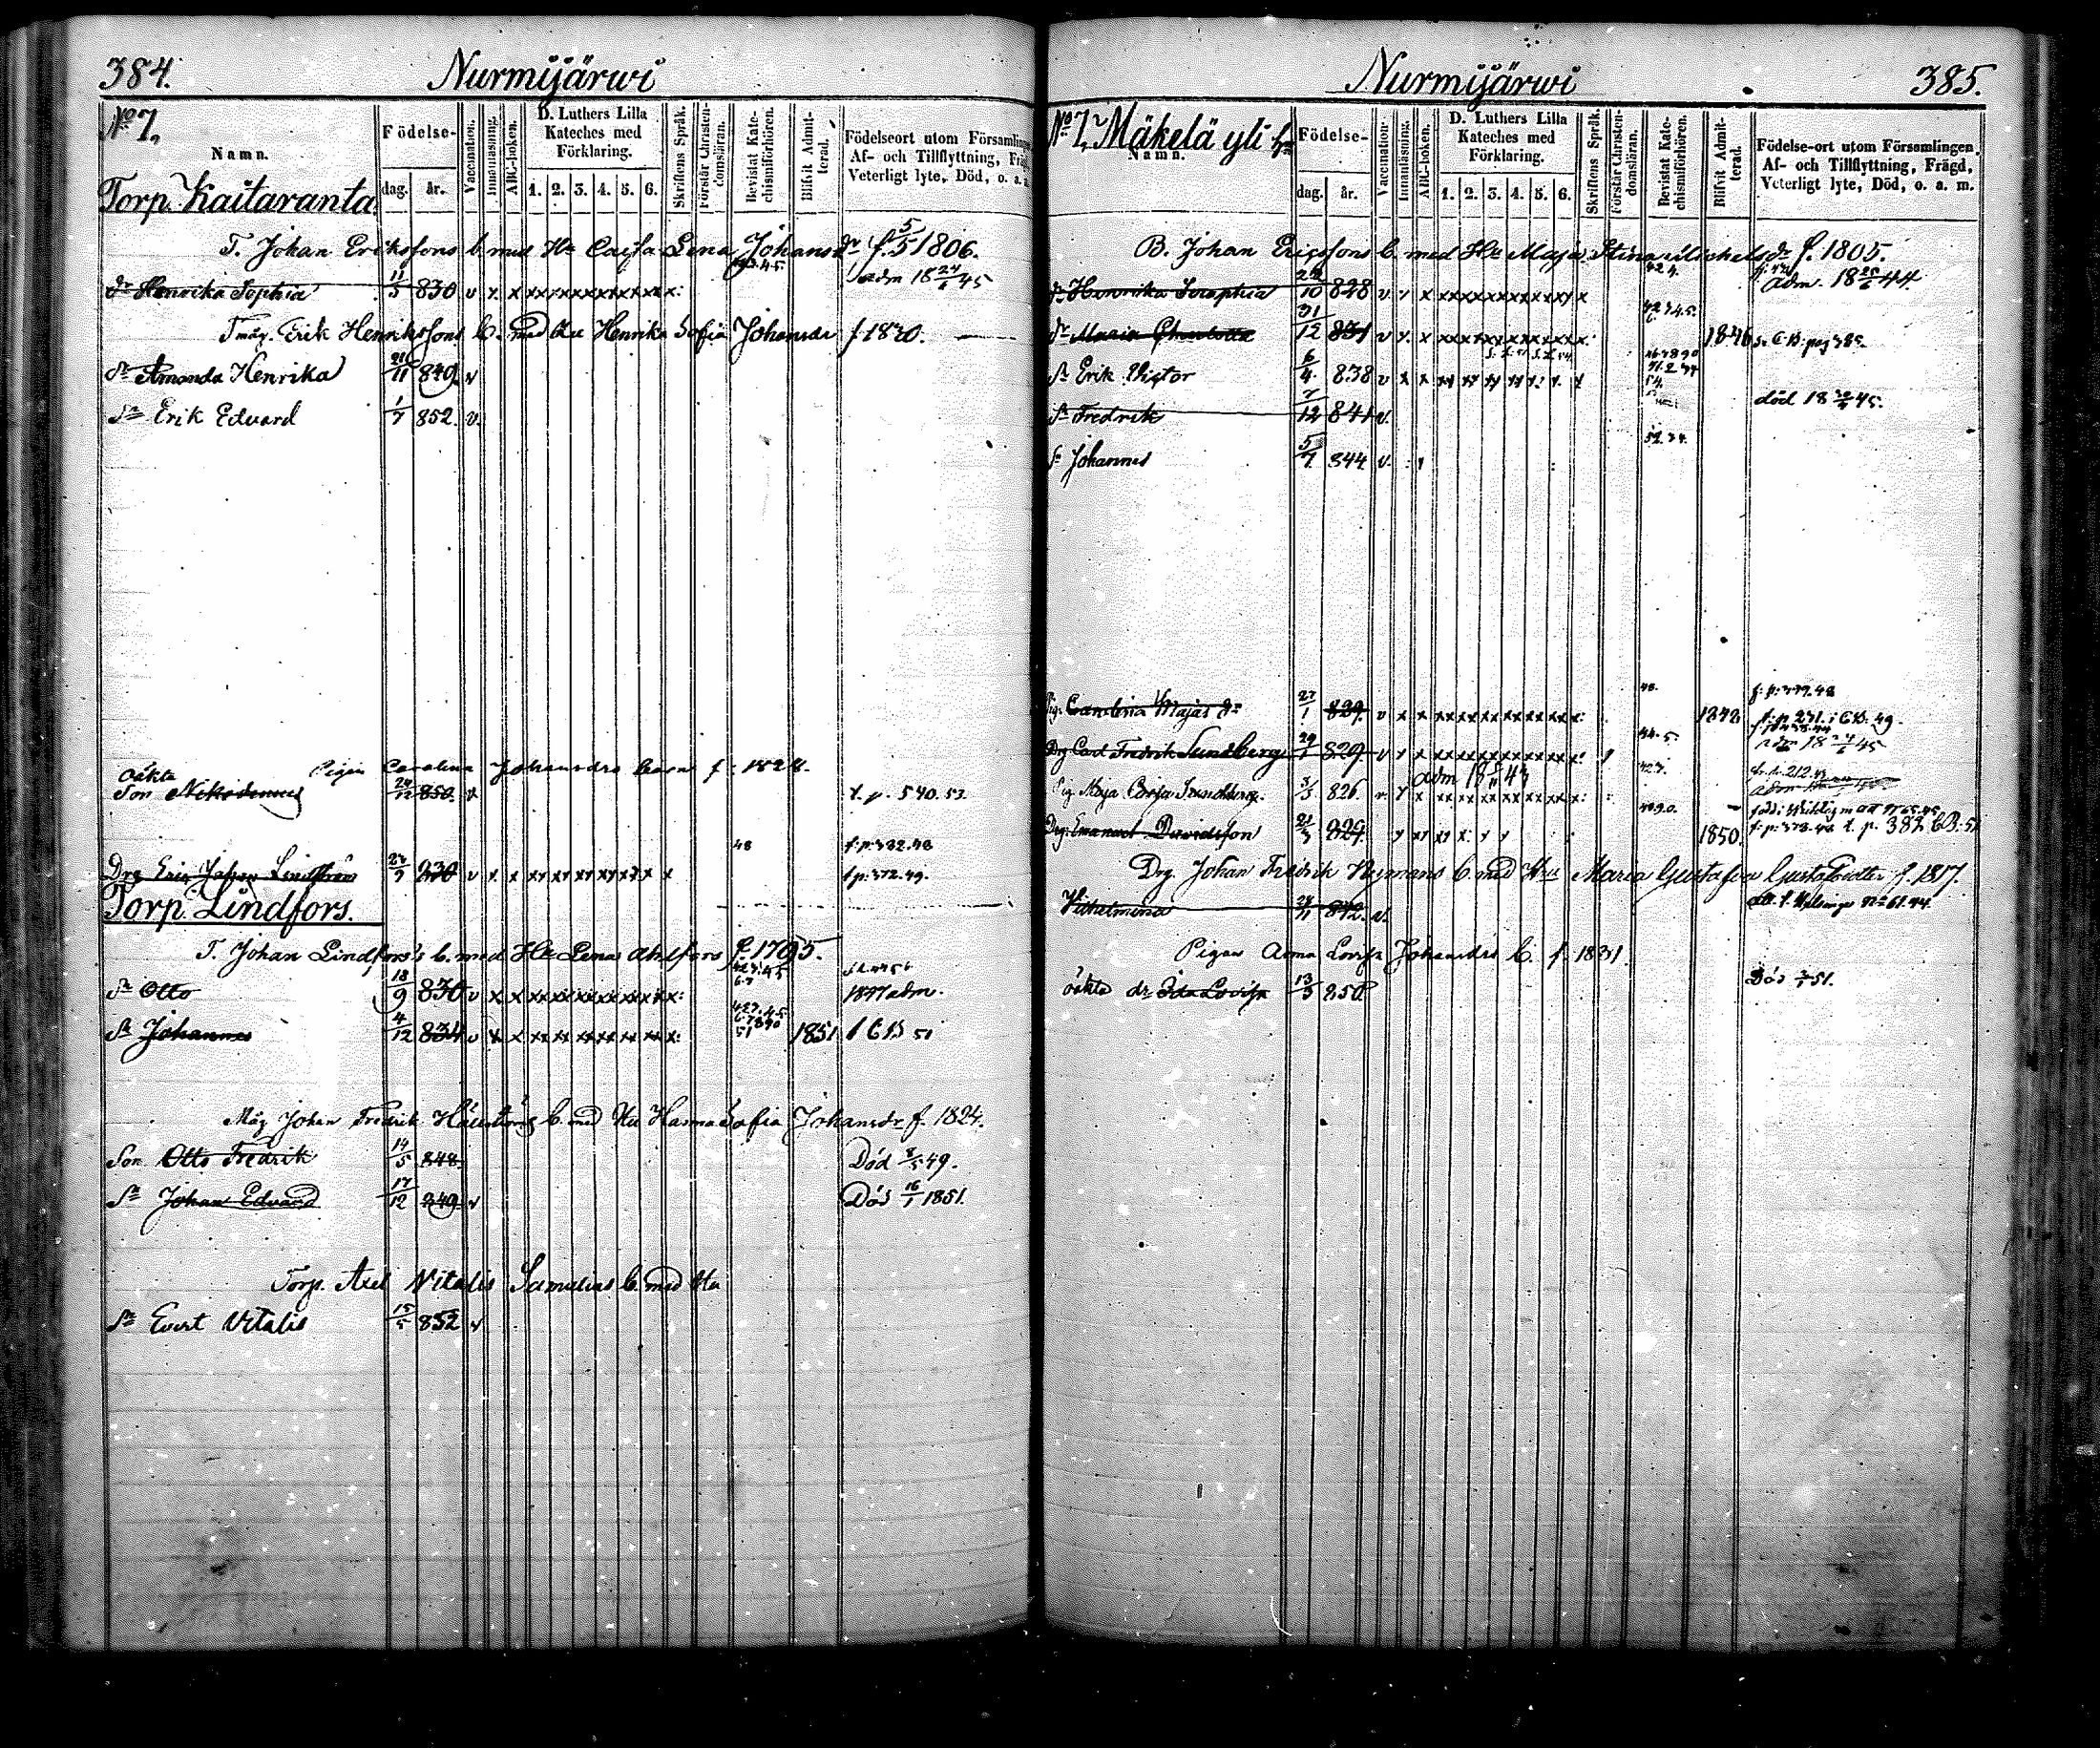 384.
Nurmijärwi
No 7.
Namn.
Födelse-
dag. år.
Vaccination.
Innanläsning.
ABC-boken.
D. Luthers Lilla Kateches med Förklaring.
1. 2. 3. 4. 5. 6.
Skriftens Språk.
Förstår Christendomsläran.
Bevistat Katechismiförhören.
Blifvit Admitterad.
Födelseort utom Församlingen
Af- och Tillflyttning, Frägd
Veterligt lyte, Död, o. a.
Torp. Kaitaranta
T. Johan Erikssons b. med Hu Cajsa Lena Johansdr f. 5/5 1806.
dr Henrika Sophia 11/5 830 v x x xx xx xx xx xx x x: adm 18 24/6 45
Tmåg. Erik Henrikssons b. med Hu Henrika Sofia Johansdr f 1830.
Dr Amanda Henrika 21/11 849 v
Sn Erik Edvard 1/7 852. v.
Pigan Carolina Johansdrs barn f. 1828.
Oäkta Son Nikodemus 24/12 850. v. t. p. 540. 53.
48 f. p. 382. 48
Drg Eric Johan Lindström 27/9 830 v x x xx xx xx xx xx x x t p. 372. 49.
Torp Lindfors.
T. Johan Lindfors's b. med Hu Lena Ahlfors f. 1795.
Sn Otto 18/9 830 v x x xx xx xx xx xx xx x: 1847 adm.
Sn Johannes 4/12 834 v x x xx xx xx xx xx xx x: 51 1851 t C B 51
Måg Johan Fredrik b. med Hu Hanna Sofia Johansdr f. 1824.
Son Otto Fredrik 14/5 848. Död 8/5 49.
Sn Johan Edvard 17/12 849 v Död 16/1 1851.
Torp. Axel Vitalis Samelins b. med Hu
Sn Evert Vitalis 15/5 852 v
Nurmijärwi
385.
No 7, Mäkelä yli
Namn.
Födelse-
dag. år.
Vaccination.
Innanläsning.
ABC-boken.
D. Luthers Lilla Kateches med Förklaring.
1. 2. 3. 4. 5. 6.
Skriftens Språk.
Förstår Christendomsläran.
Bevistat Katechismiförhören.
Blifvit Admitterad.
Födelse-ort utom Församlingen.
Af- och Tillflyttning, Frägd,
Veterligt lyte, Död, o. a. m.
B. Johan Ericssons b. med Hu Maja Stina Michelsdr f. 1805.
dr Henrika Seraphia 10 828 v x x xx xx xx xx xx xx x adm. 18 44
dr Maria Charlotta 31/12 831 v x. x 1846 s. C B. pag 385.
Sn Erik Victor 6/4 838 v x x xx xx xx xx x. x. x
Sn Fredrik 7/12 841 v. död 18 45.
S. Johannes 5/7 844 v.
48. f. p. 379. 48
Pig. Carolina Majas dr 27/1 829. v x x xx xx xx xx xx xx x: 1848 t. p. 271. i C B. 49.
Drg Carl Fredrik Sundberg 29/1 829. v x x 45
adm 18 43
Pig Maja Cajsa Sundberg. 3/5 826. v. x x xx xx xx xx xx xx x:
Drg. Emanuel Davidsson 21/3 824. 1850. f. p. 378. 48 t. p. 382 C B. 51
Drg Johan Fredrik Nymans b. med Hu Maria Gustafva Gustafsdotter f. 1817.
Vilhelmina 24/11 842. v. att. t. Helsinge No 61. 44.
Pigan Anna Lovisa Johansdrs b. f. 1831.
oäkta dr Ida Lovisa 13/3 850 Död 51.